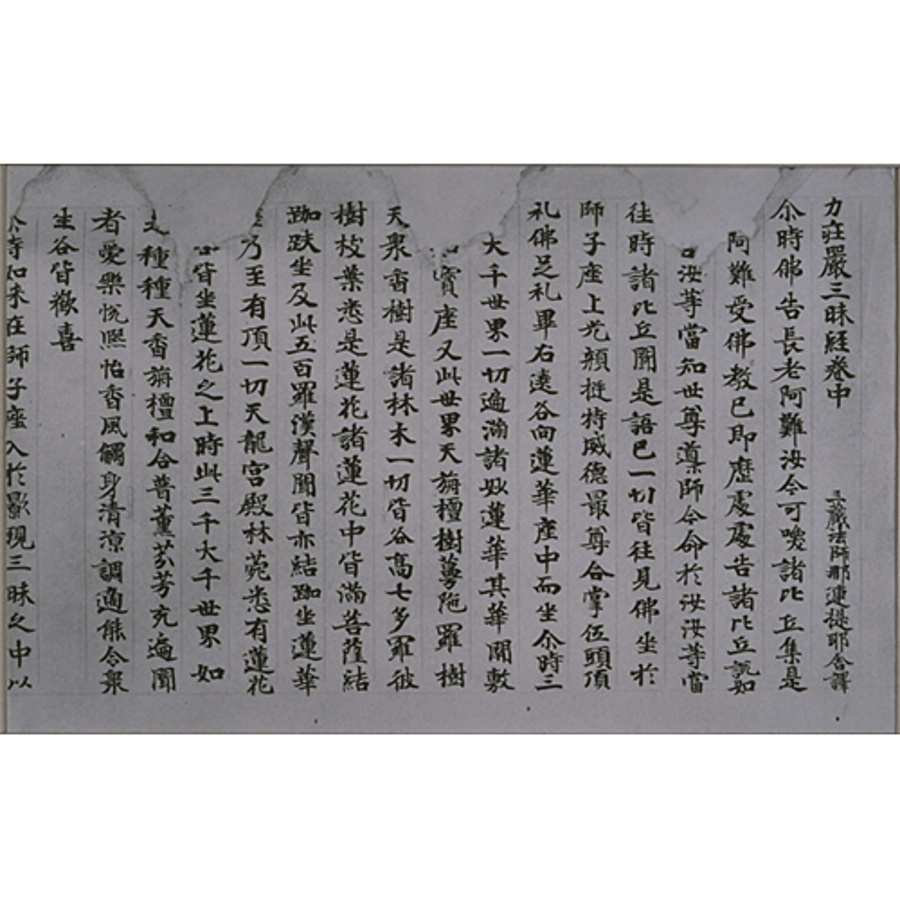 力莊嚴三昧經卷中 三藏法師那連提耶舍譯
尒時佛告長老阿難汝今可喚諸比丘集是
阿難受佛教已即歷處處告諸比丘說如
汝等當知世尊導師今命於汝汝等當
往時諸比丘聞是語已一切皆往見佛坐於
師子座上光顏挺特威德最尊合掌伍頭頂
礼佛足礼畢右遶各向蓮華座中而坐尒時三
大千世界一切遍滿諸妙蓮華其華開敷
寶座又此世界天旃檀樹蔓陁羅樹
天衆香樹是諸林木一切皆各高七多羅彼
樹枝葉悉是蓮花諸蓮花中皆滿菩薩結
跏趺坐及此五百羅漢聲聞皆亦結跏坐蓮華
乃至有頂一切天龍宮殿林菀悉有蓮花
皆坐蓮花之上時此三千大千世界如
種種天香旃檀和合普薰芬芳充遍聞
者愛樂悅熙怡香風觸身清涼調適能令衆
生各皆歡喜
尒時如来在師子座入於影現三昧之中以